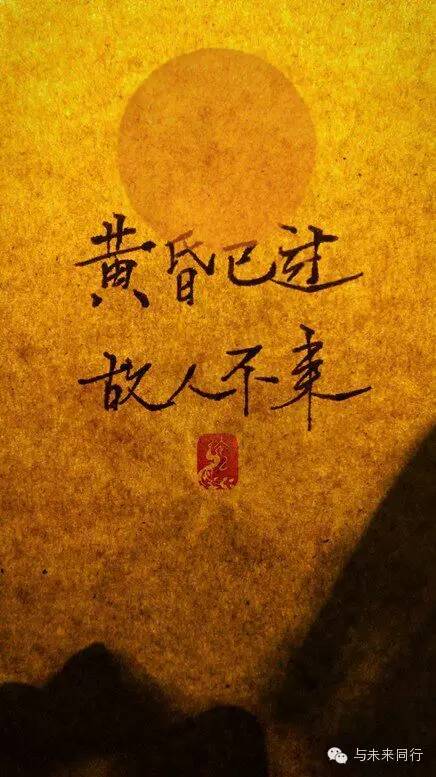 黄昏已过
故人不来
与未来同行